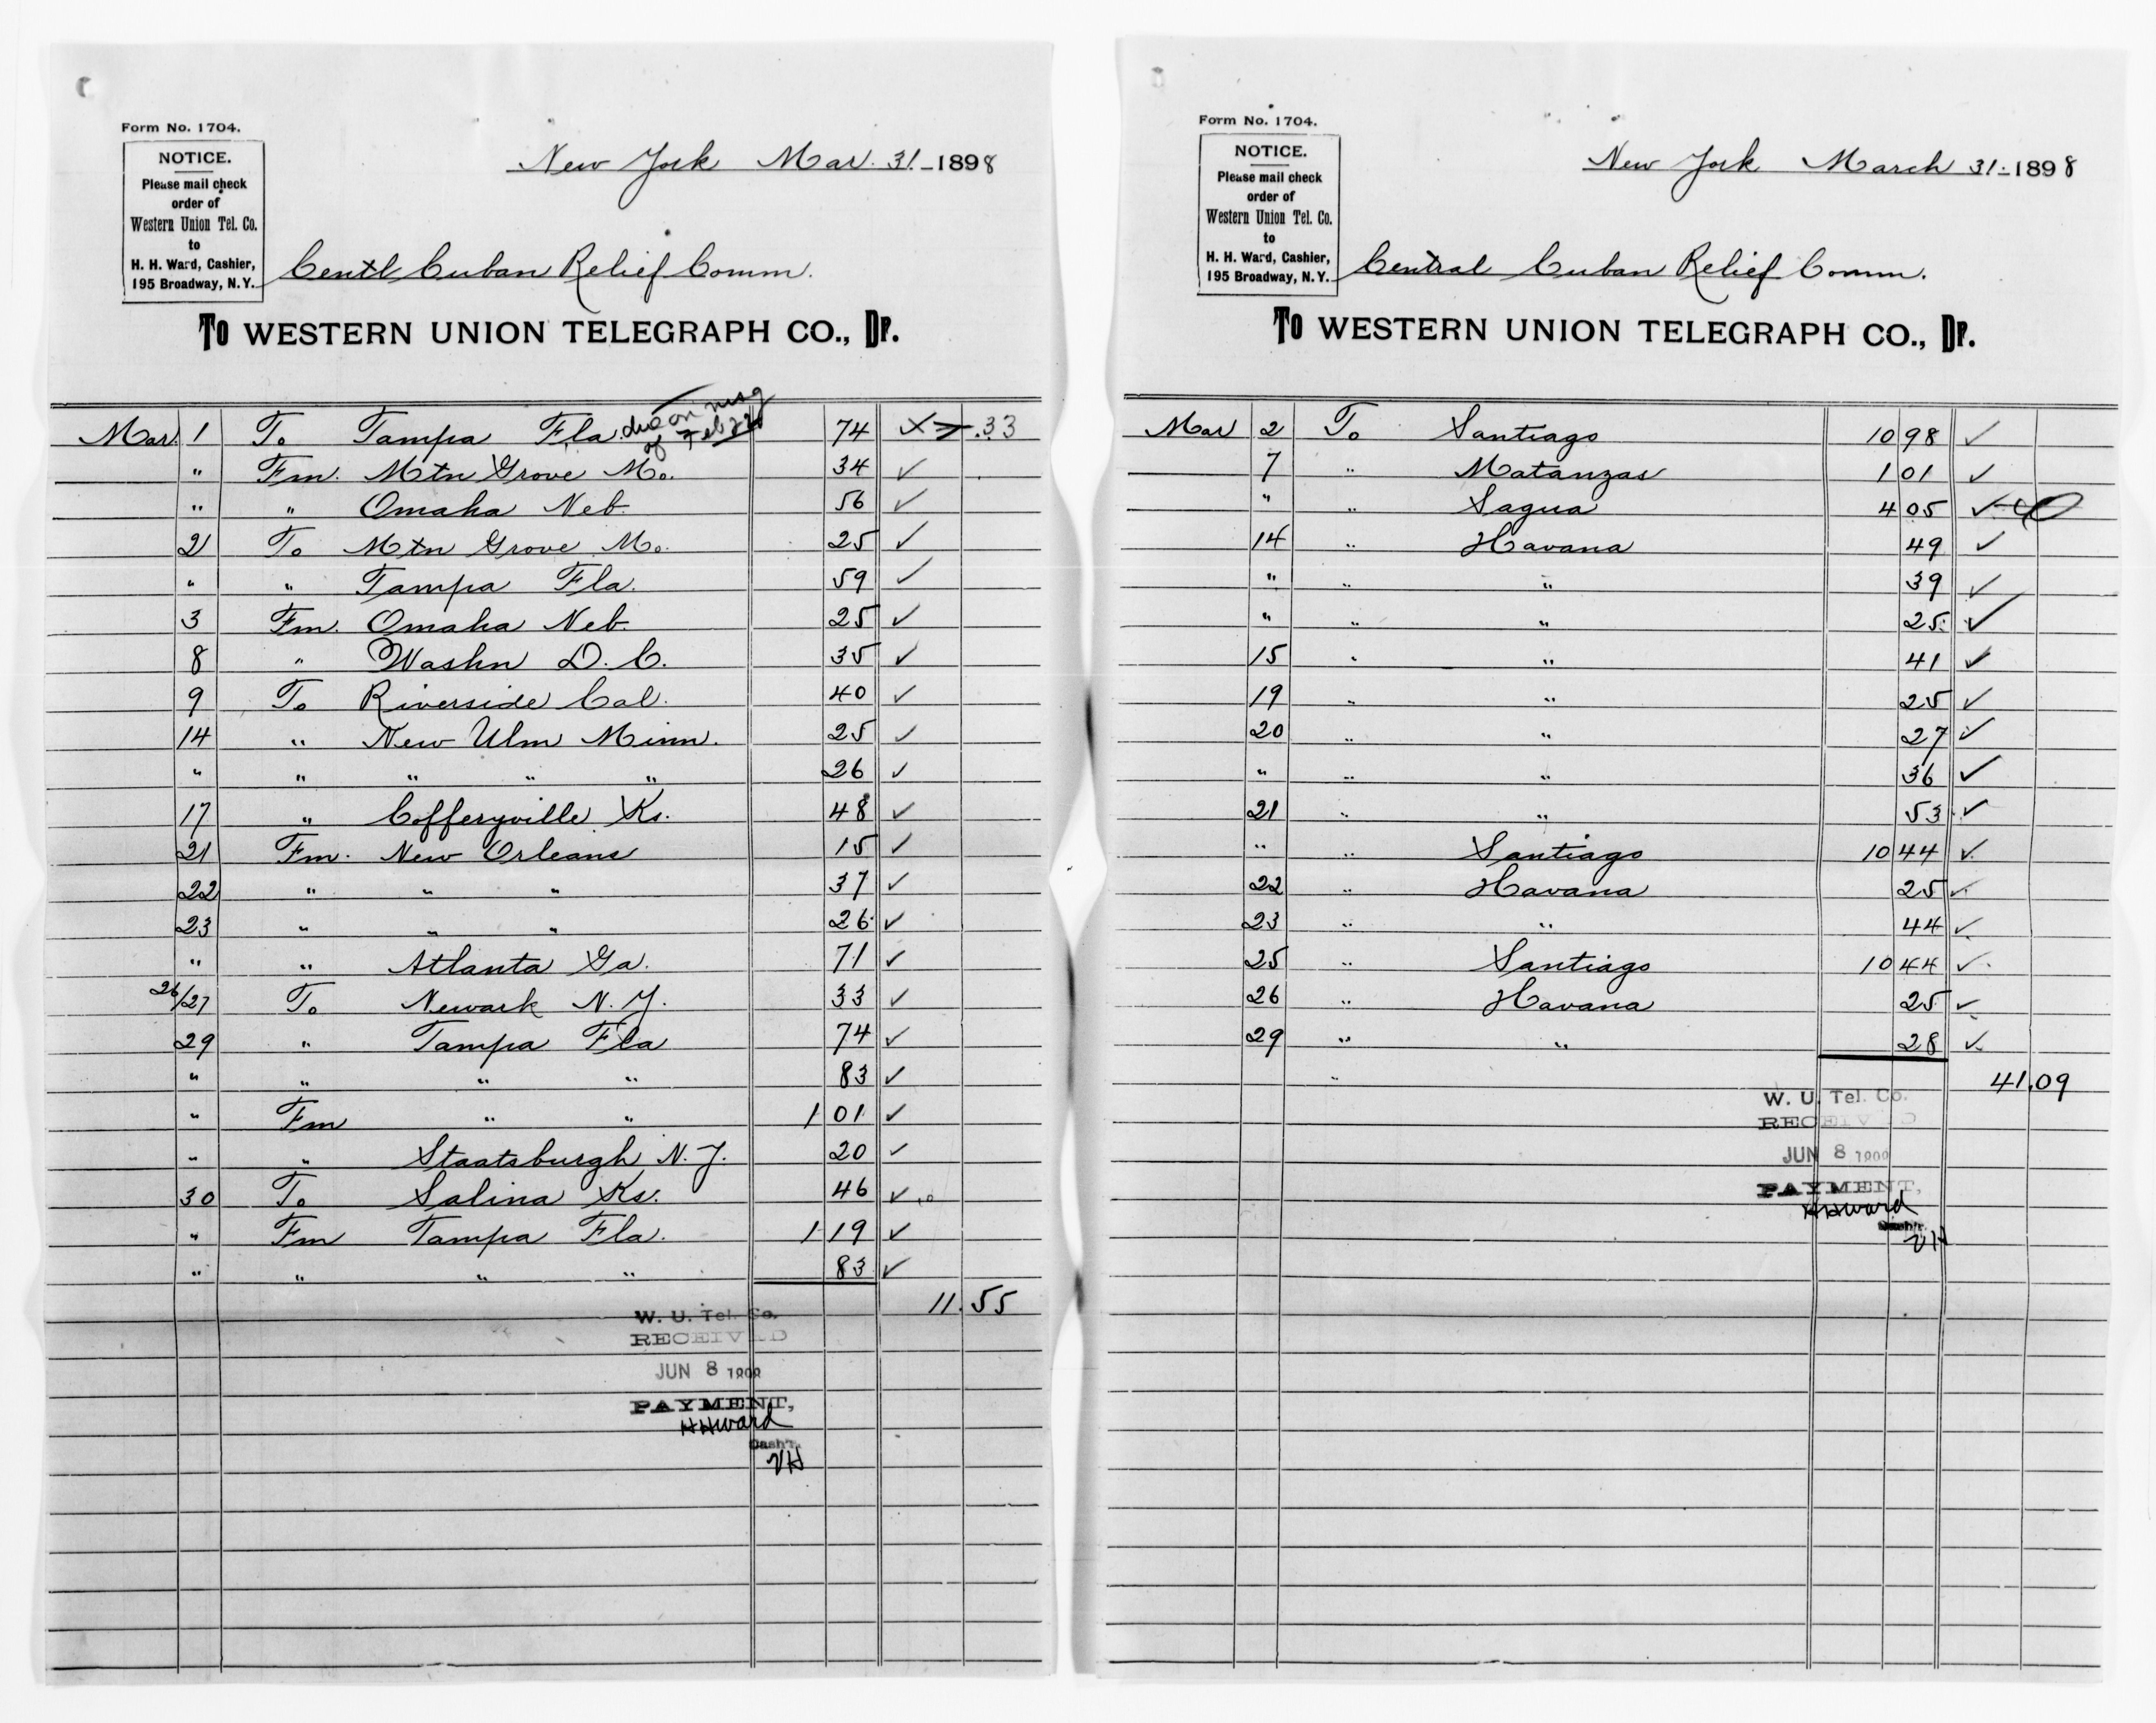 Form No. 1704.
NOTICE.
Please mail check
order of
Western Union Tel. Co.
to
H. H. Ward, Cashier,
195 Broadway, N.Y.
New York Mar. 31-1898
Centl Cuban Relief Comm.
To WESTERN UNION TELEGRAPH CO., Dr.
due on msg
of Feb 22
Mar. 1 To Tampa Fla. 74 X .33
" Fm. Mtn Grove Mo. 34 ✓
" " Omaha Neb. 56 ✓
2 To Mtn Grove Mo. 25 ✓
" " Tampa Fla. 59 ✓
3 Fm. Omaha Neb. 25 ✓
8 " Washn D.C. 35 ✓
9 To Riverside Cal. 40 ✓
14 " New Ulm Minn. 25 ✓
" " " " " 26 ✓
17 " Cofferyville Ks. 48 ✓
21 Fm. New Orleans 15 ✓
22 " " " 37 ✓
23 " " " 26 ✓
" " Atlanta Ga. 71 ✓
26/27 To Newark N.J. 33 ✓
29 " Tampa Fla 74 ✓
" " " " 83 ✓
" Fm " " 1 01 ✓
" " Staatsburgh N.Y. 20 ✓
30 To Salina Ks. 46 ✓
" Fm Tampa Fla. 1 19 ✓
" " " " 83 ✓
11.55
W. U. Tel. Co.
RECEIVED
JUN 8
PAYMENT,
HHWard
Cash'r.
VH
Form No. 1704.
NOTICE.
Please mail check
order of
Western Union Tel. Co.
to
H. H. Ward, Cashier,
195 Broadway, N.Y.
New York March 31-1898
Central Cuban Relief Comm.
To WESTERN UNION TELEGRAPH CO., Dr.
Mar 2 To Santiago 10 98 ✓
7 " Matanzas 1 01 ✓
" " Sagua 4 05 ✓
14 " Havana 49 ✓
" " " 39 ✓
" " " 25 ✓
15 " " 41 ✓
19 " " 25 ✓
20 " " 27 ✓
" " " 36 ✓
21 " " 53 ✓
" " Santiago 10 44 ✓
22 " Havana 25 ✓
23 " " 44 ✓
25 " Santiago 10 44 ✓
26 " Havana 25 ✓
29 " " 28 ✓
" 41.09
W. U. Tel. Co.
RECEIVED
JUN 8
PAYMENT,
HHWard
Cash'r.
VH